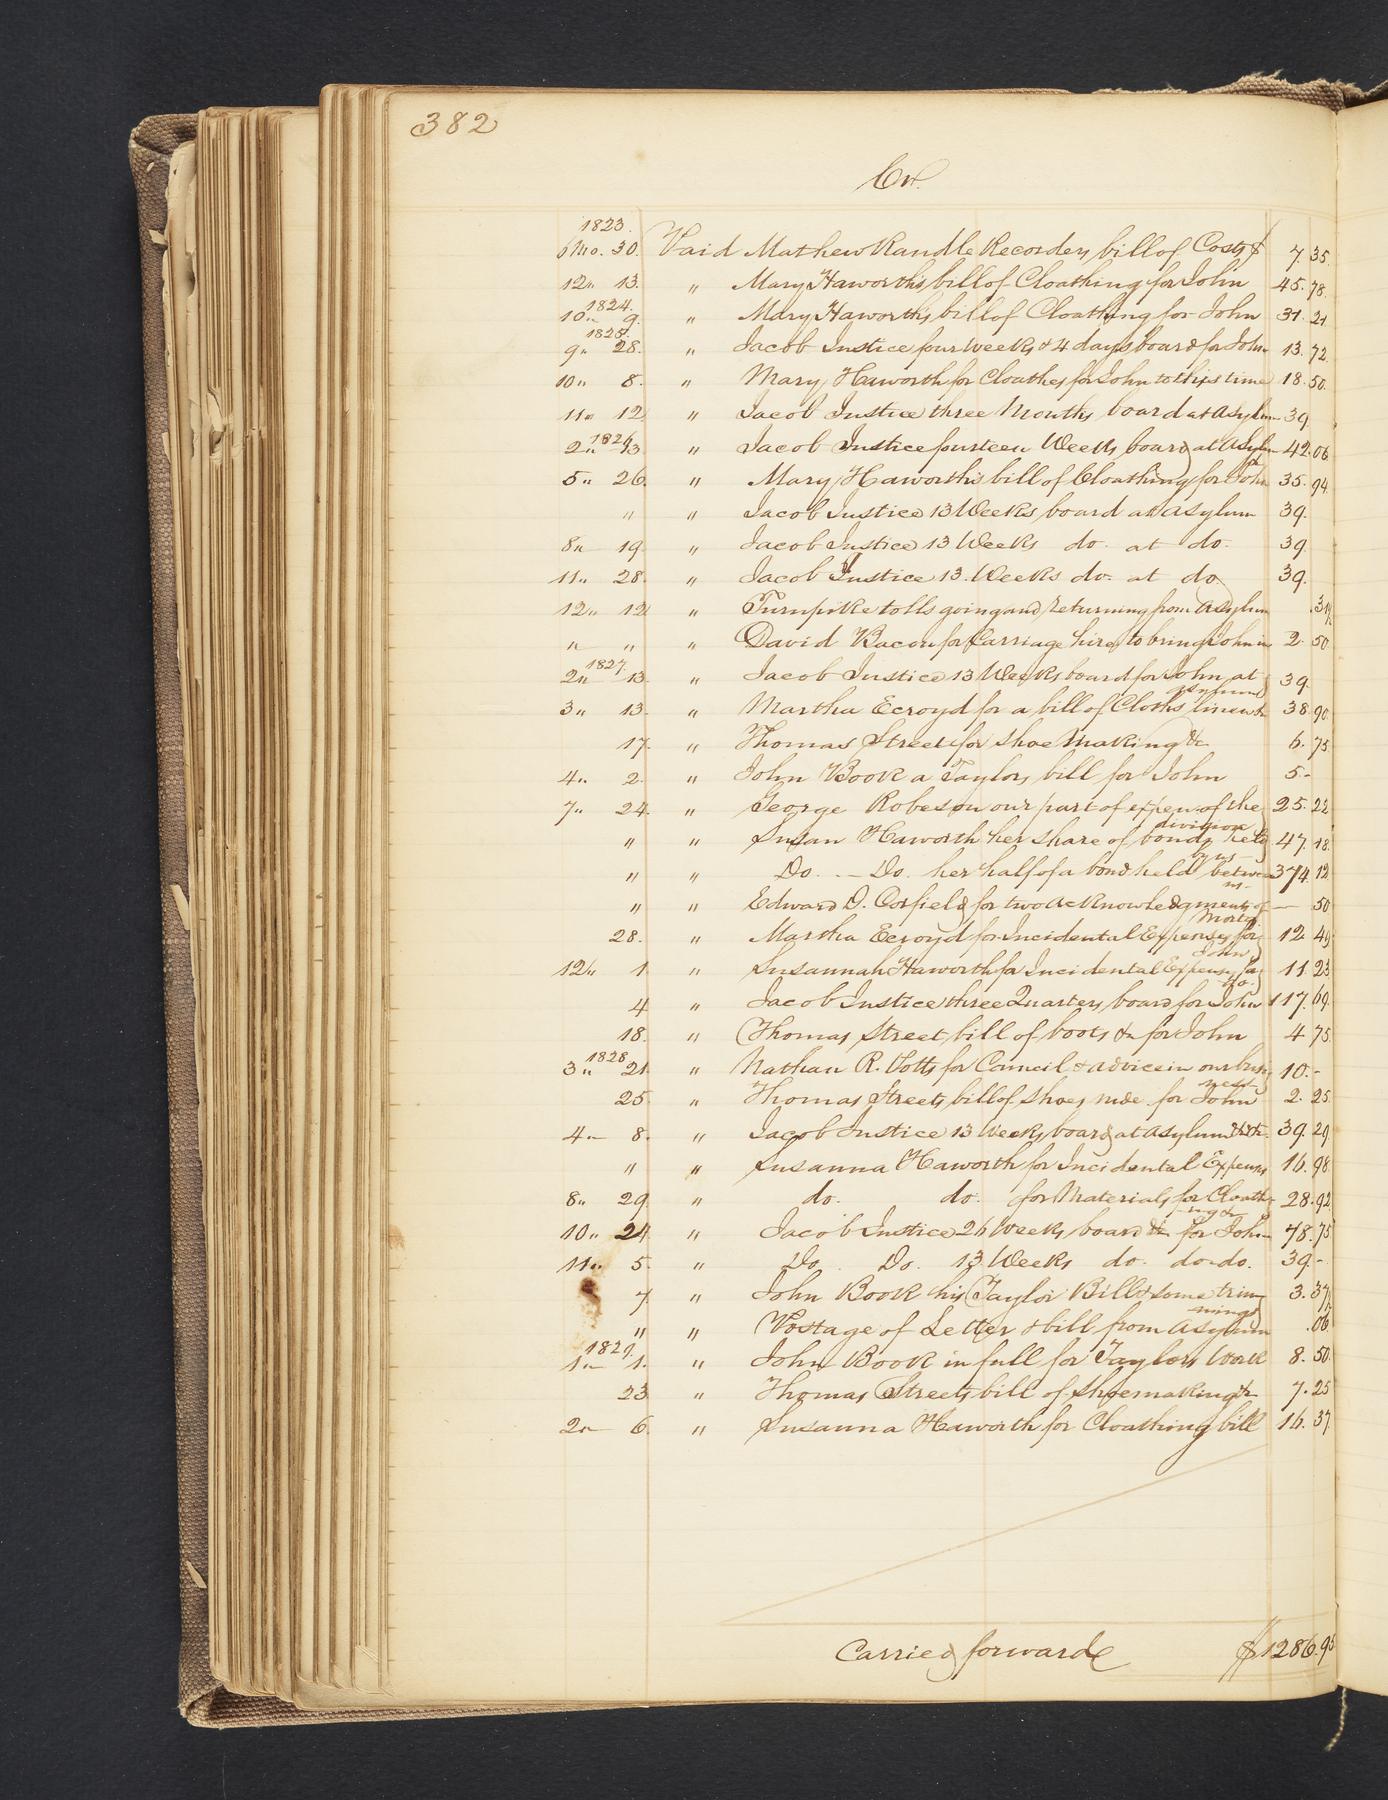 382
Cr.
1823.
6 Mo. 30. Paid Mathew Randle Recorders bill of Costs $ 7.35
12 " 13. " Mary Haworth's bill of Cloathing for John 45.78
1824.
10 " 9. " Mary Haworth's bill of Cloathing for John 31.21
1825.
9 " 28. " Jacob Justice four Weeks & 4 days board for John 13.72
10 " 8. " Mary Haworth for Cloathes for John to this time 18.50
11 " 12 " Jacob Justice three Months board at Asylum 39
1826
2 " 13 " Jacob Justice fourteen Weeks board at Asylum 42.06
5 " 26. " Mary Haworth's bill of Cloathing for John 35.94
" " Jacob Justice 13 Weeks board at Asylum 39.
8 " 19. " Jacob Justice 13 Weeks do. at do. 39.
11 " 28. " Jacob Justice 13. Weeks do. at do 39.
12 " 12 " Turnpike tolls going and returning from Asylum .31½
" " " David Bacon for Carriage hire, to bring John in 2.50
1827.
2 " 13. " Jacob Justice 13 Weeks board for John at 39.
asylum
3 " 13. " Martha Ecroyd for a bill of Cloths linen &c 38.90
17. " Thomas Street for Shoe Making &c 6.75
4 " 2. " John Book a Taylors bill for John 5-
7 " 24. " George Robeson our part of expen of the 25.22
division
" " Susan Haworth her share of bonds held 47.18
by us
" " Do. - Do. her half of a bond held between 374.12
us-
" " Edward D. Corfield for two acknowledgments of - 50
Mortg.
28. " Martha Ecroyd for Incidental Expenses for 12.49
John
12 " 1. " Susannah Haworth for Incidental Expenses for 11.23
do.
4 " Jacob Justice three Quarters board for John 117.69
18. " Thomas Street bill of boots &c for John 4.75
1828
3 " 21. " Nathan R. Potts for Council & advice in our busi 10.-
ness
25. " Thomas Streets bill of Shoes mde. for John 2.25
4 " 8. " Jacob Justice 13 Weeks board at Asylum &c 39.29
" " Susanna Haworth for Incidental Expenses 16.98
8 " 29. " do. do. for Materials for Cloath- 28.92
ing &c
10 " 24. " Jacob Justice 26 Weeks board &c for John 78.75
11 " 5. " Do. Do. 13 Weeks do. do do. 39.-
7. " John Book his Taylor Bill & some trim 3.37½
mings
" " Postage of Letter & bill from Asylum .06
1829.
1 " 1. " John Book in full for Taylors Work 8.50
23 " Thomas Streets bill of Shoemaking &c 7.25
2 " 6. " Susanna Haworth for Cloathing bill 16.37
Carried forward $1286.95